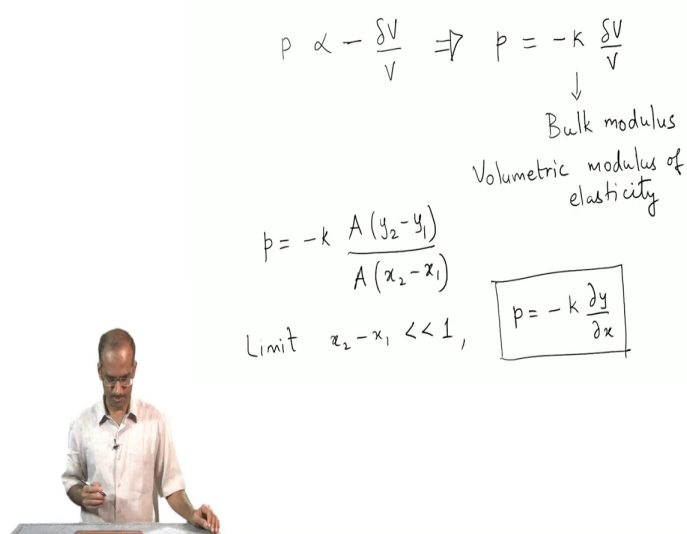 p ∝ − δV/V ⇒ p = −k δV/V
↓
Bulk modulus
Volumetric modulus of
elasticity
p = −k A(y₂−y₁)/A(x₂−x₁)
Limit x₂−x₁ <<1, p = −k ∂y/∂x